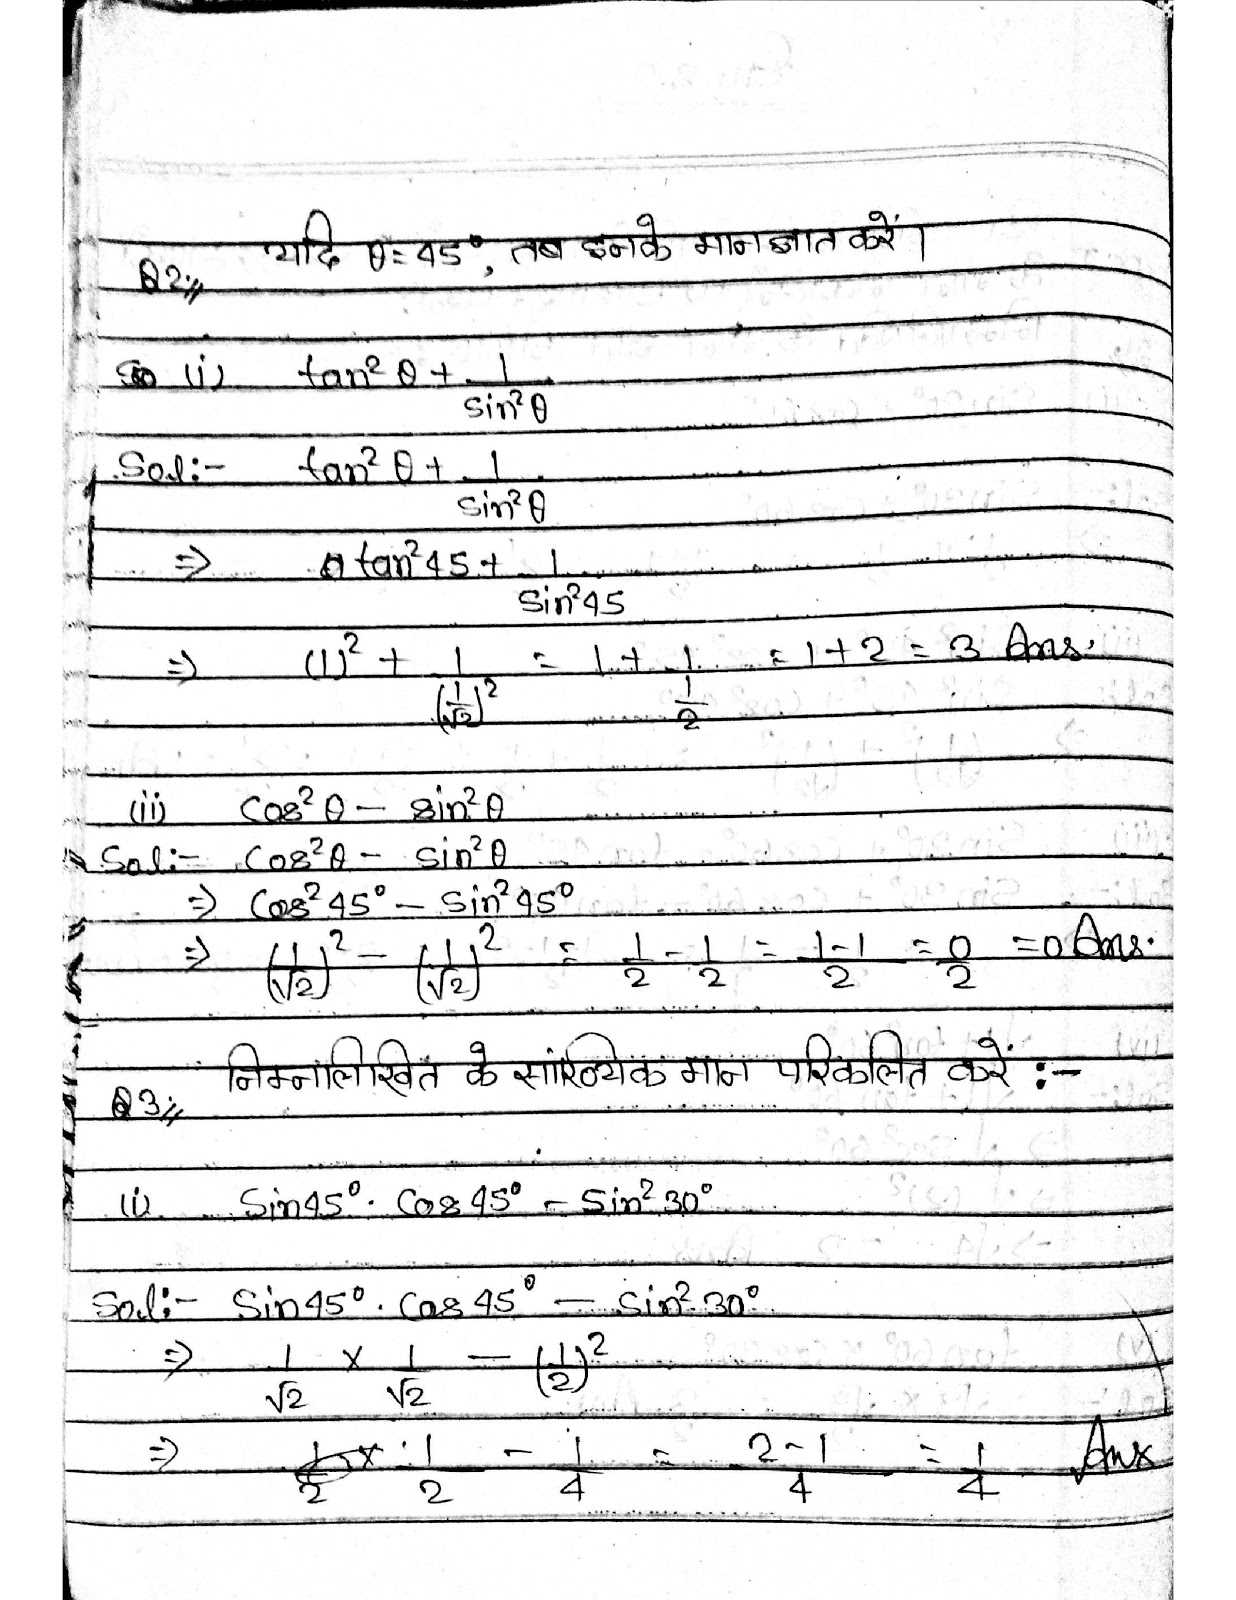 यदि θ=45°, तब इनके मान ज्ञात करें।
Q2://
(i) tan² θ + 1/sin² θ
Sol:- tan² θ + 1/sin² θ
⇒ tan² 45 + 1/sin² 45
⇒ (1)² + 1/(1/√2)² = 1 + 1/(1/2) = 1+2 = 3 Ans.
(ii) Cos² θ – sin² θ
Sol:- Cos² θ – sin² θ
⇒ Cos² 45° – Sin² 45°
⇒ (1/√2)² – (1/√2)² = 1/2 - 1/2 = (1-1)/2 = 0/2 = 0 Ans.
निम्नलिखित के सांख्यिक मान परिकलित करें :-
Q3://
(i) Sin45° . Cos45° – Sin² 30°
Sol:- Sin45° . Cos45° – Sin² 30°
⇒ 1/√2 × 1/√2 – (1/2)²
⇒ 1/2 – 1/4 = (2-1)/4 = 1/4 Ans